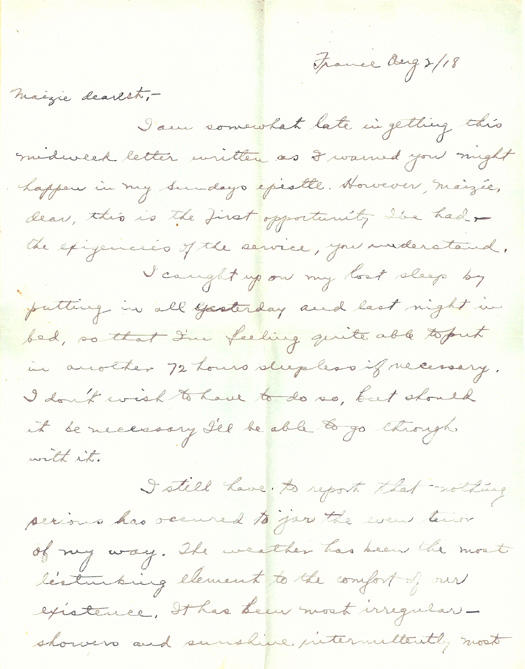 France Aug 2/18
Maizie dearest,-
I am somewhat late in getting this
midweek letter written as I warned you might
happen in my Sundays epistle. However, Maizie,
dear, this is the first opportunity I've had -
the exigencies of the service, you understand.
I caught up on my lost sleep by
putting in all yesterday and last night in
bed, so that I'm feeling quite able to put
in another 72 hours sleepless if necessary.
I don't wish to have to do so, but should
it be necessary I'll be able to go through
with it.
I still have to report that nothing
serious has occured to jar the even tenor
of my way. The weather has been the most
disturbing element to the comfort of our
existence. It has been most irregular -
showers and sunshine intermittently most